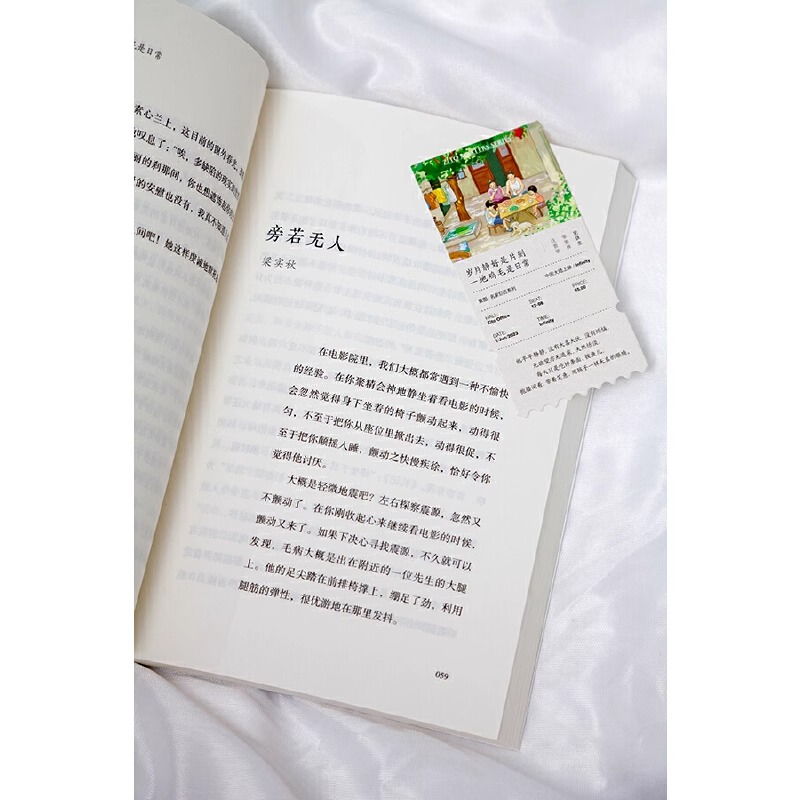 是日常
素心兰上，这目前的斑外春光，
叹息了：“唉，多缺陷的现实
到的刹那间，你也想遗
的安慰也没有，我真不知道
间吧！她这样虔诚地
旁若无人
梁实秋
在电影院里，我们大概都常遇到一种不愉快
的经验。在你聚精会神地静坐着看电影的时候，
会忽然觉得身下坐着的椅子颤动起来，动得很
匀，不至于把你从座位里掀出去，动得很促，不
至于把你颠摇入睡，颤动之快慢疾徐，恰好令你
觉得他讨厌。
大概是轻微地震吧？左右探察震源，忽然又
不颤动了。在你刚收起心来继续看电影的时候，
颤动又来了。如果下决心寻找震源，不久就可以
发现，毛病大概是出在附近的一位先生的大腿
上。他的足尖踏在前排椅撑上，绷足了劲，利用
腿筋的弹性，很优游地在那里发抖。
059
岁月静好是片刻
一地鸡毛是日常
Infinity
SEAT:
PRICE:
HALL:
DATE:
TIME:
Infinity